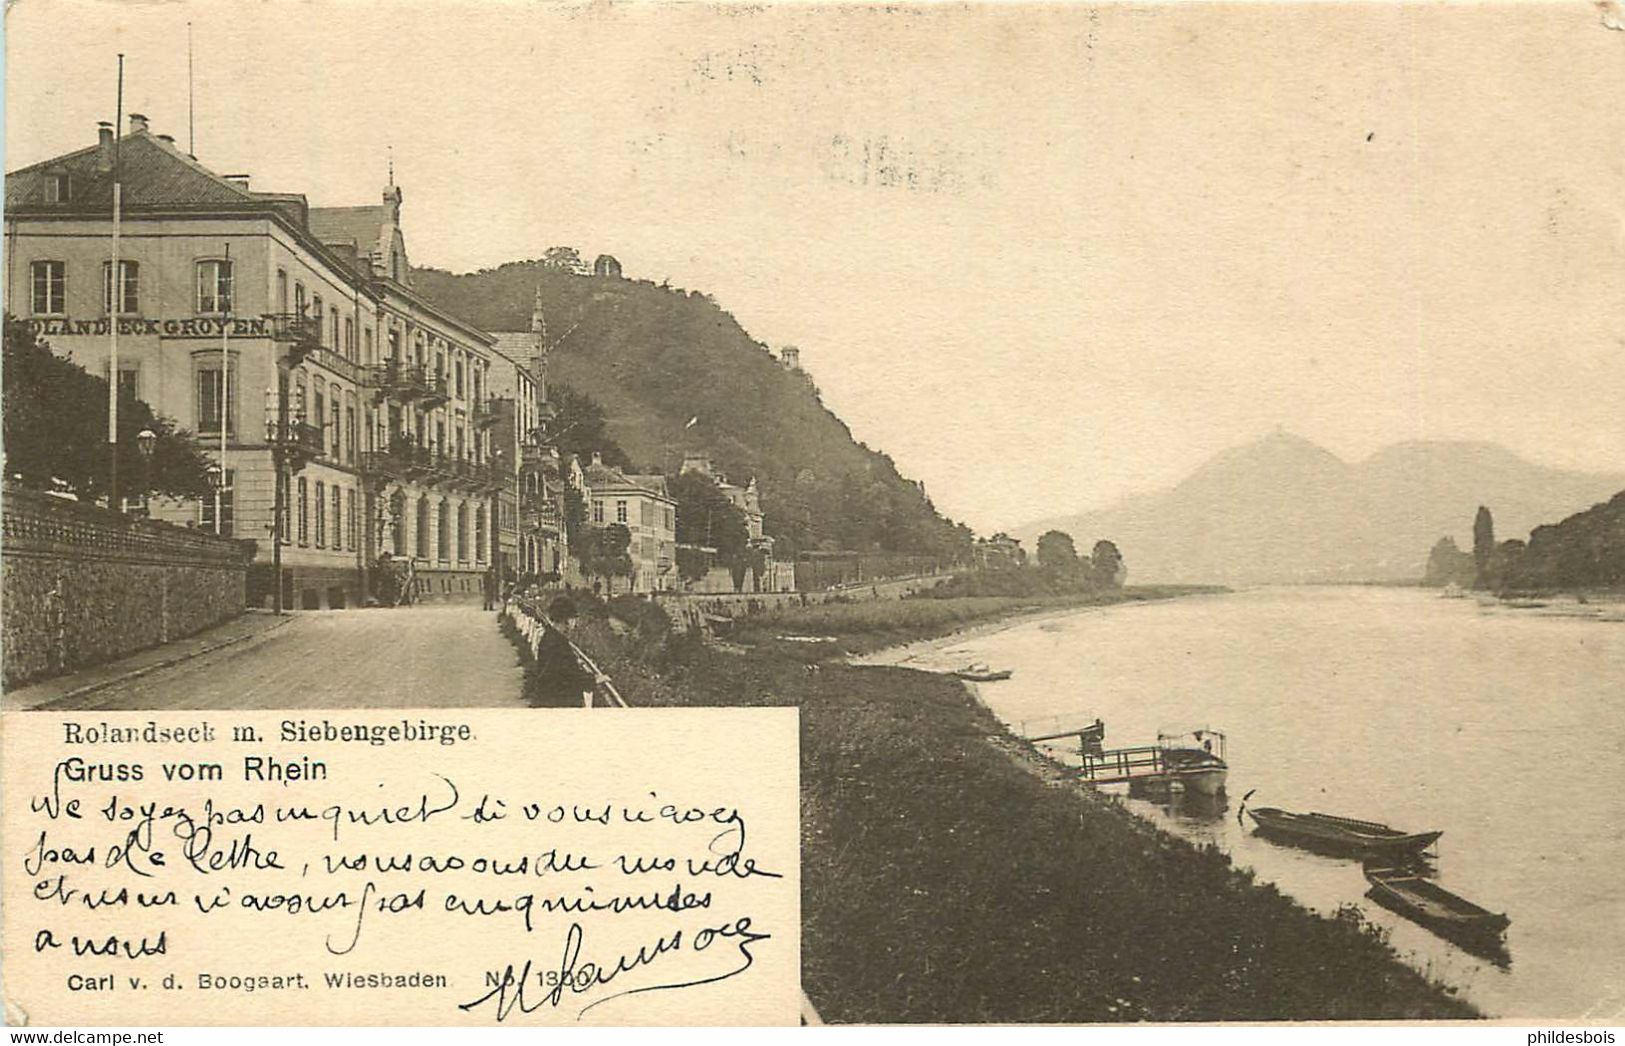 OLANDSECK GROYEN.
Rolandseck m. Siebengebirge.
Gruss vom Rhein
Ne soyez pas inquiet si vous n'avez
pas de lettre, nous avons du monde
et nous n'avons pas cinq minutes
a nous
Carl v. d. Boogaart, Wiesbaden No. 1300
phildesbois